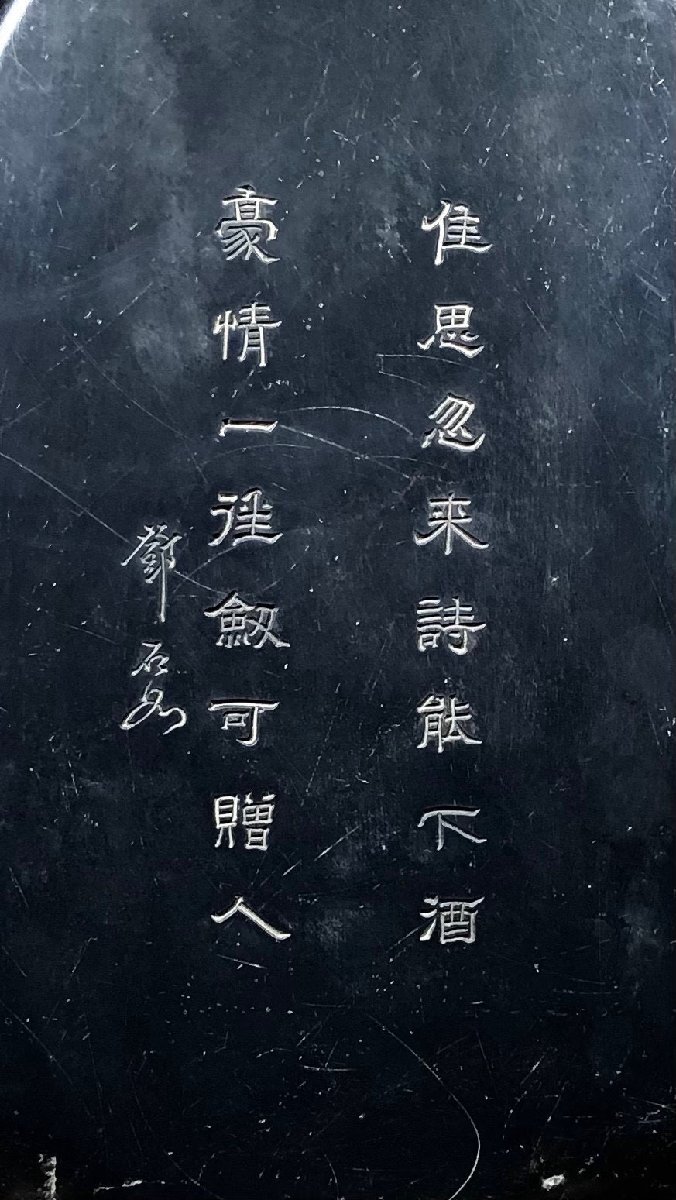 佳思忽来詩能下酒
豪情一往劔可贈人
鄧石如